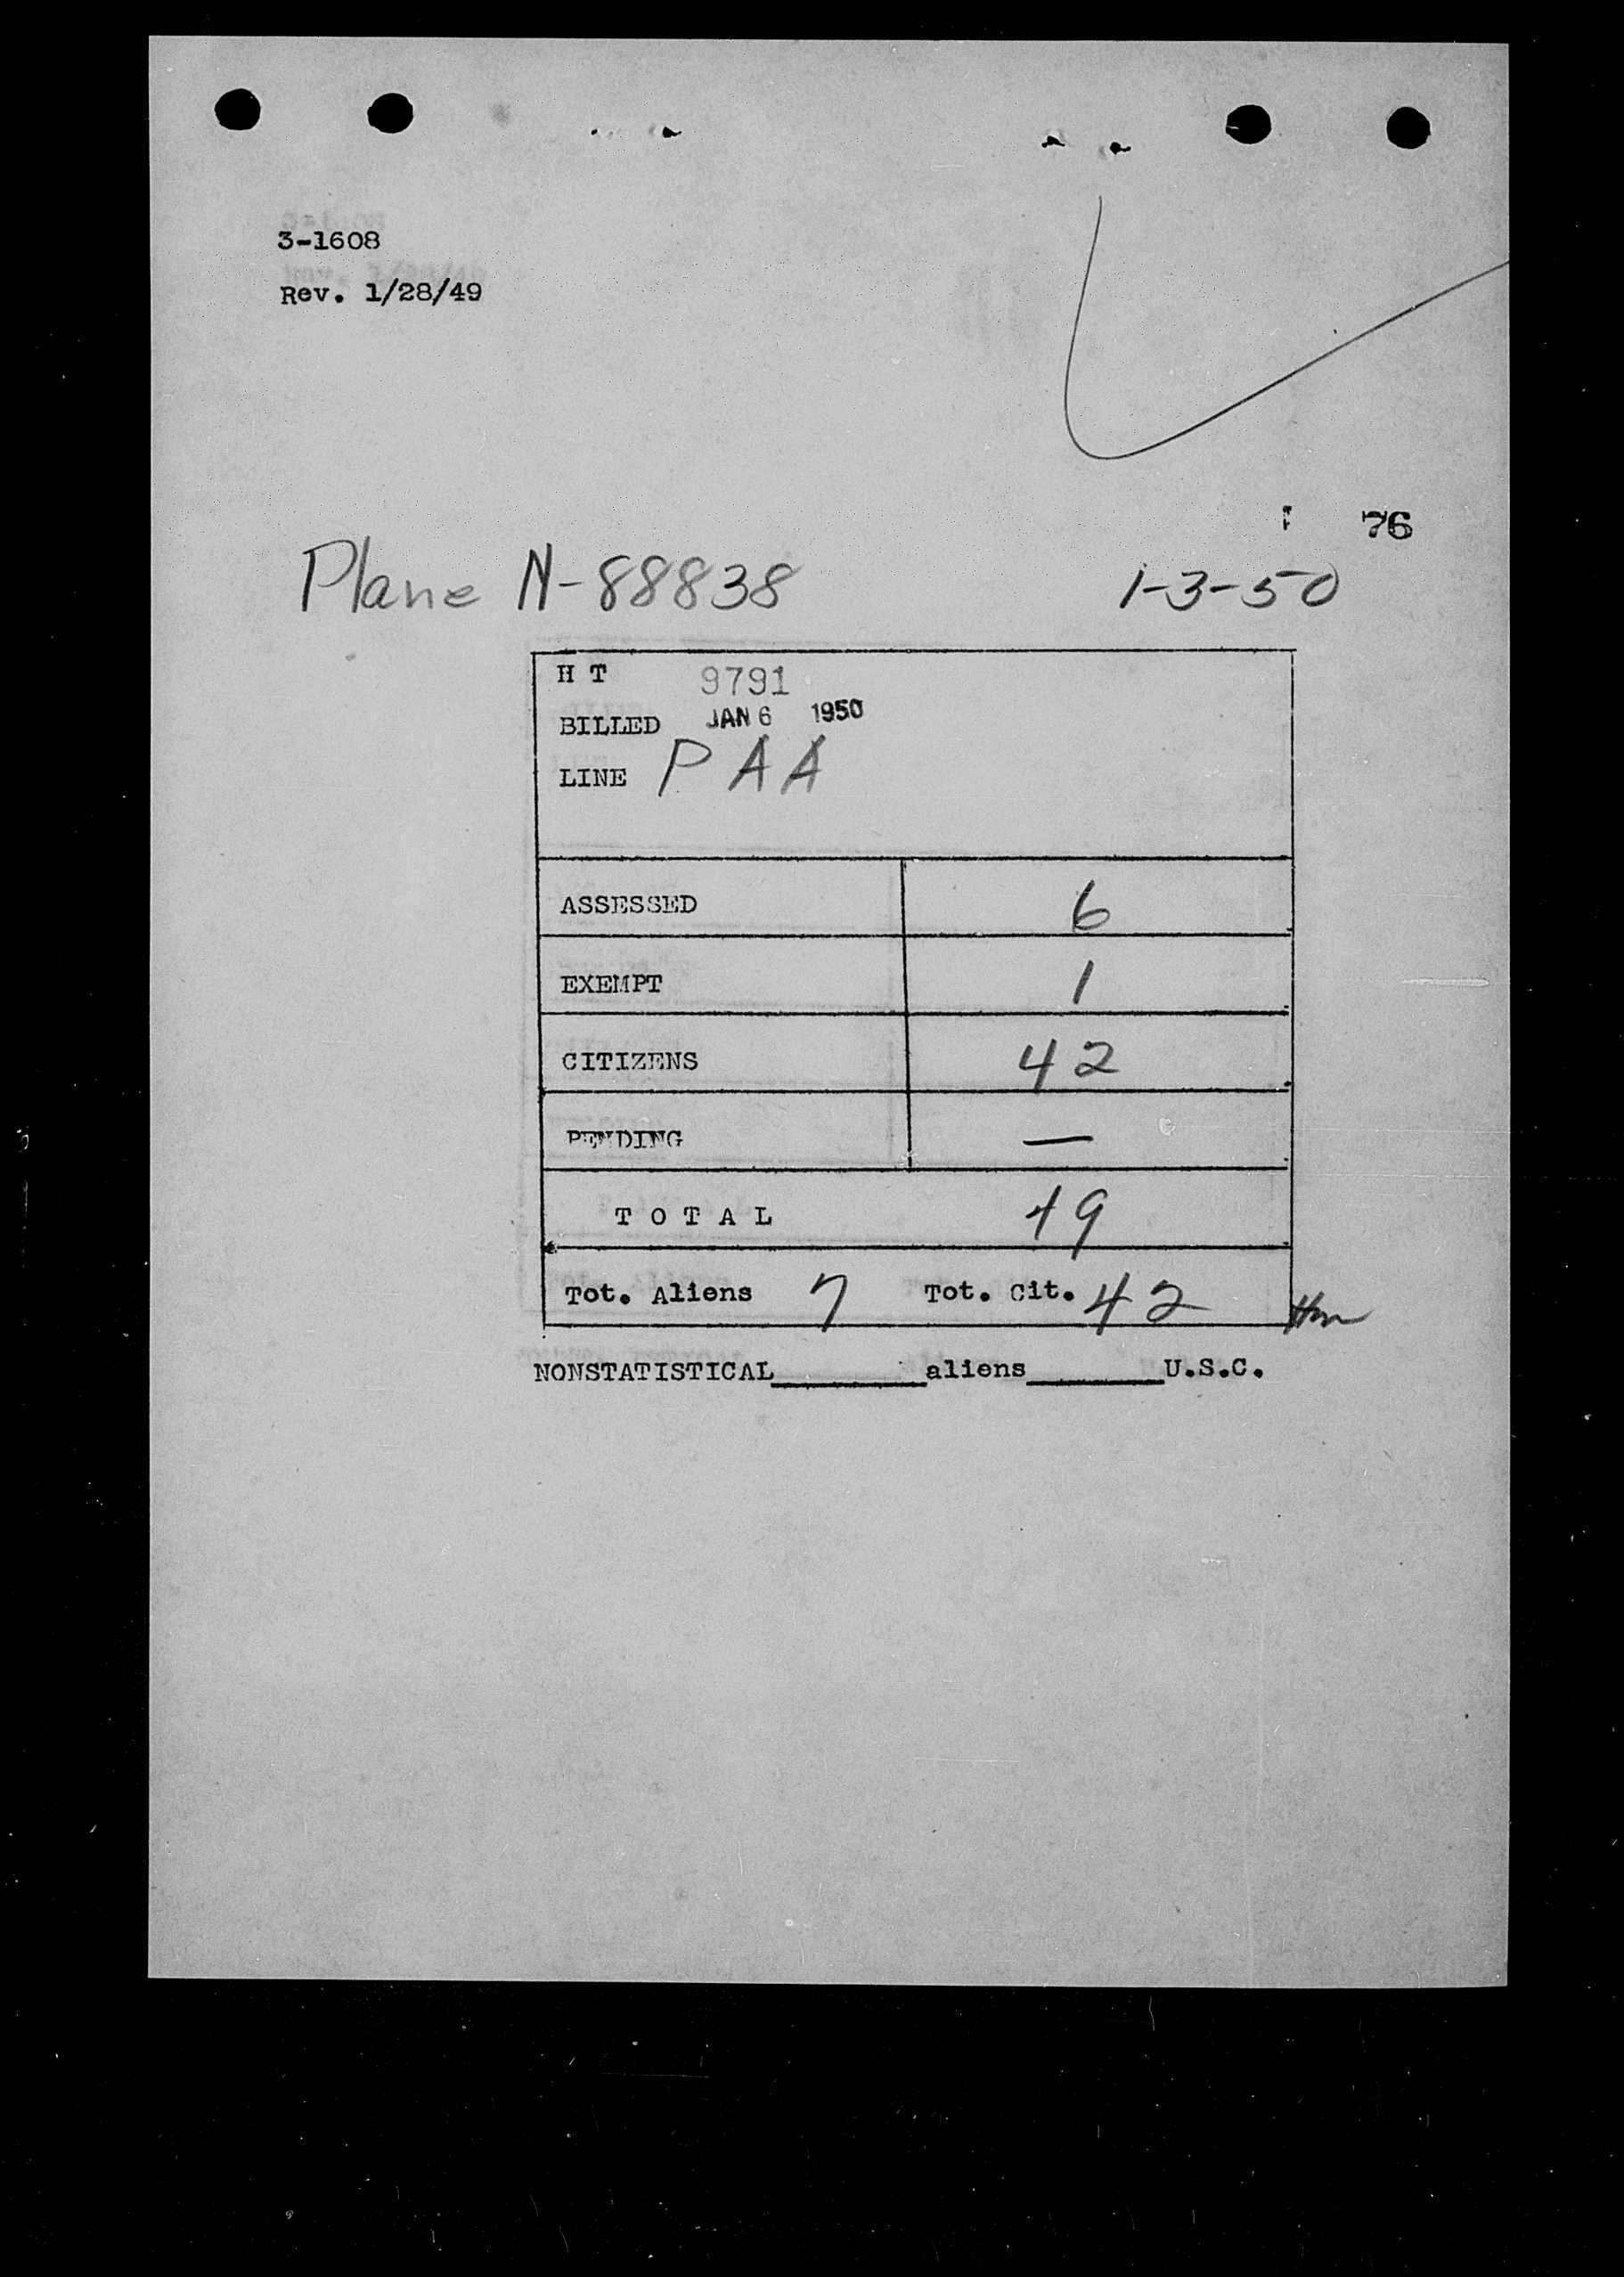 3-1608
Rev. 1/28/49
76
Plane N-88838 1-3-50
H T 9791
BILLED JAN 6 1950
LINE P A A
ASSESSED 6
EXEMPT 1
CITIZENS 42
PENDING —
T O T A L 49
Tot. Aliens 7 Tot. Cit. 42
NONSTATISTICAL________aliens________U.S.C.